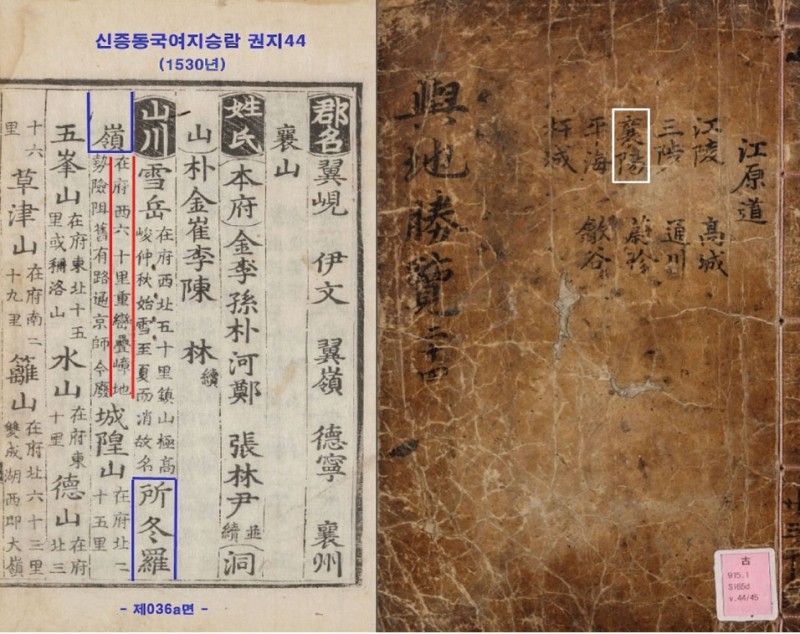 신증동국여지승람 권지44
(1530년)
郡名 翼峴 伊文 翼嶺 德寧 襄州
襄山
姓氏 本府 金李孫朴河鄭 張林尹 並續 洞
山 朴金崔李陳 林 續
山川 雪岳 在府西北五十里鎮山極高峻仲秋始雪至夏而消故名 所冬羅
嶺 在府西六十里重巒疊嶂地勢險阻舊有路通京師今廢 城隍山 在府北二十五里
五峯山 在府東北十五里或稱洛山 水山 在府東十里 德山 在府北三
十六里 草津山 在府南二十九里 籬山 在府北六十三里雙成湖西卽大嶺
- 제036a면 -
江原道
江陵 高城
三陟 通川
襄陽 蔚珍
平海 歙谷
杆城
輿地勝覽
古
915.1
Si65d
v.44/45